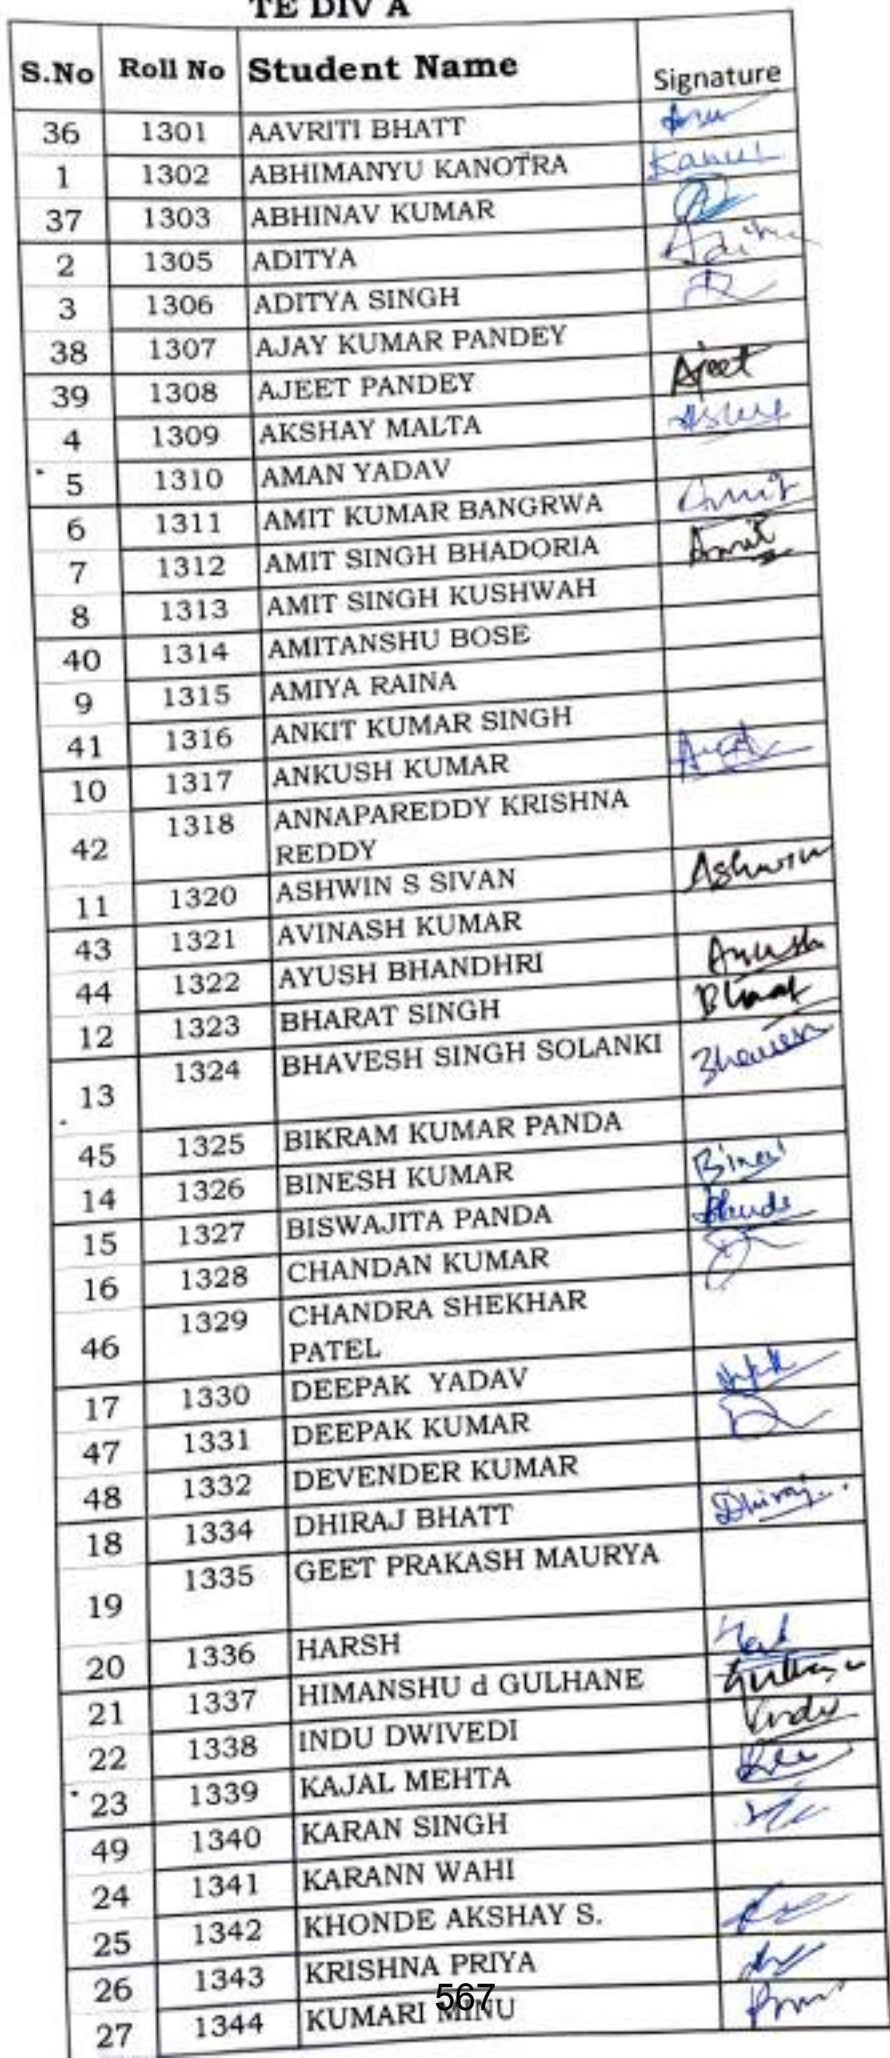 TE DIV A
S.No Roll No Student Name Signature
36 1301 AAVRITI BHATT
1 1302 ABHIMANYU KANOTRA
37 1303 ABHINAV KUMAR
2 1305 ADITYA
3 1306 ADITYA SINGH
38 1307 AJAY KUMAR PANDEY
39 1308 AJEET PANDEY Ajeet
4 1309 AKSHAY MALTA
5 1310 AMAN YADAV
6 1311 AMIT KUMAR BANGRWA Amit
7 1312 AMIT SINGH BHADORIA Amit
8 1313 AMIT SINGH KUSHWAH
40 1314 AMITANSHU BOSE
9 1315 AMIYA RAINA
41 1316 ANKIT KUMAR SINGH
10 1317 ANKUSH KUMAR
42 1318 ANNAPAREDDY KRISHNA
REDDY
11 1320 ASHWIN S SIVAN Ashwin
43 1321 AVINASH KUMAR
44 1322 AYUSH BHANDHRI
12 1323 BHARAT SINGH Bharat
13 1324 BHAVESH SINGH SOLANKI
45 1325 BIKRAM KUMAR PANDA
14 1326 BINESH KUMAR
15 1327 BISWAJITA PANDA
16 1328 CHANDAN KUMAR
46 1329 CHANDRA SHEKHAR
PATEL
17 1330 DEEPAK YADAV
47 1331 DEEPAK KUMAR
48 1332 DEVENDER KUMAR
18 1334 DHIRAJ BHATT Dhiraj
19 1335 GEET PRAKASH MAURYA
20 1336 HARSH
21 1337 HIMANSHU d GULHANE
22 1338 INDU DWIVEDI
23 1339 KAJAL MEHTA
49 1340 KARAN SINGH
24 1341 KARANN WAHI
25 1342 KHONDE AKSHAY S.
26 1343 KRISHNA PRIYA
27 1344 KUMARI MINU
567